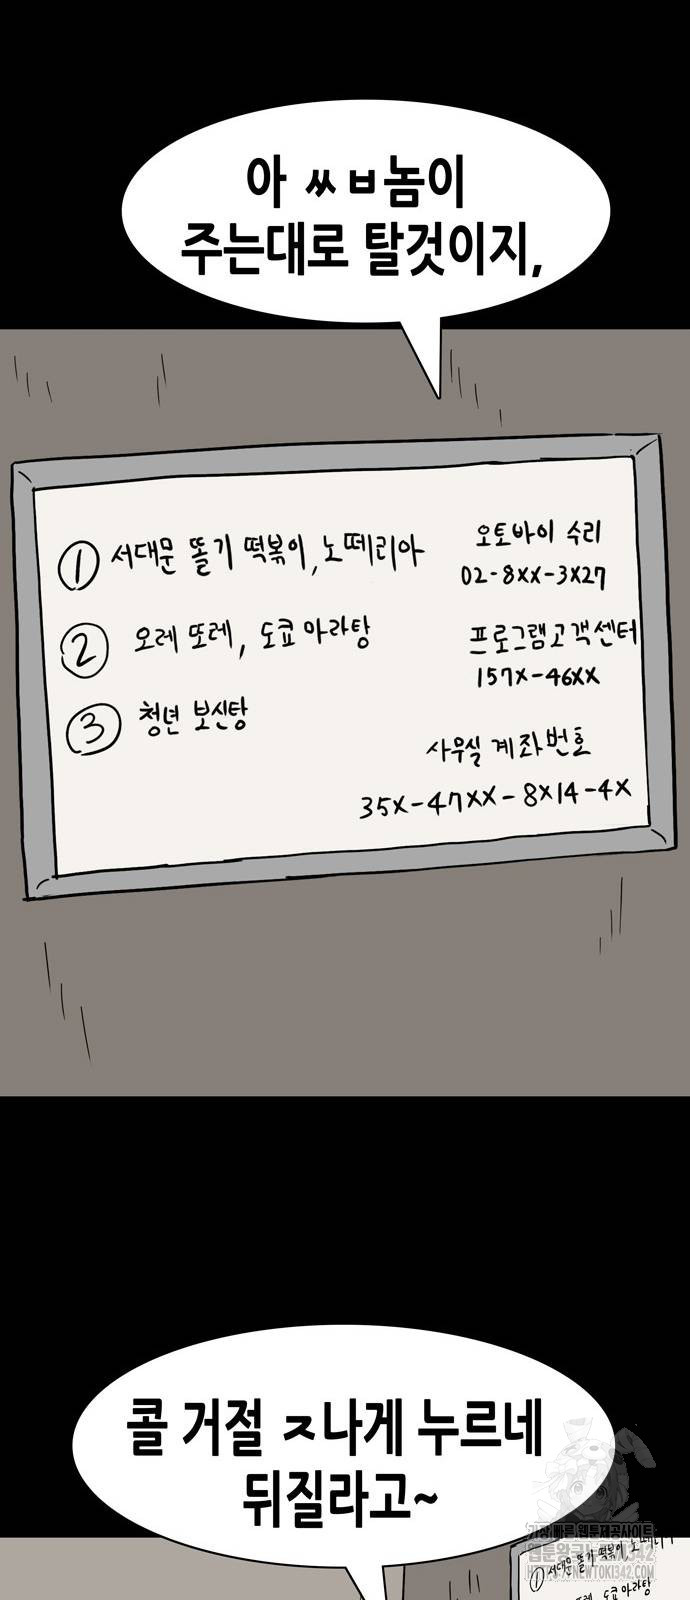 아 ㅆㅂ놈이
주는대로 탈것이지,
① 서대문 똘기 떡볶이, 노떼리아
오토바이 수리
02-8XX-3X27
② 오레 또레, 도쿄 마라탕
프로그램고객센터
157X-46XX
③ 청년 보신탕
사무실 계좌번호
35X-47XX-8X14-4X
콜 거절 ㅈ나게 누르네
뒤질라고~
가장빠른 웹툰제공사이트
NEWTOKI342.COM
① 서대문 똘기 떡볶이, 노떼리
도쿄 마라탕